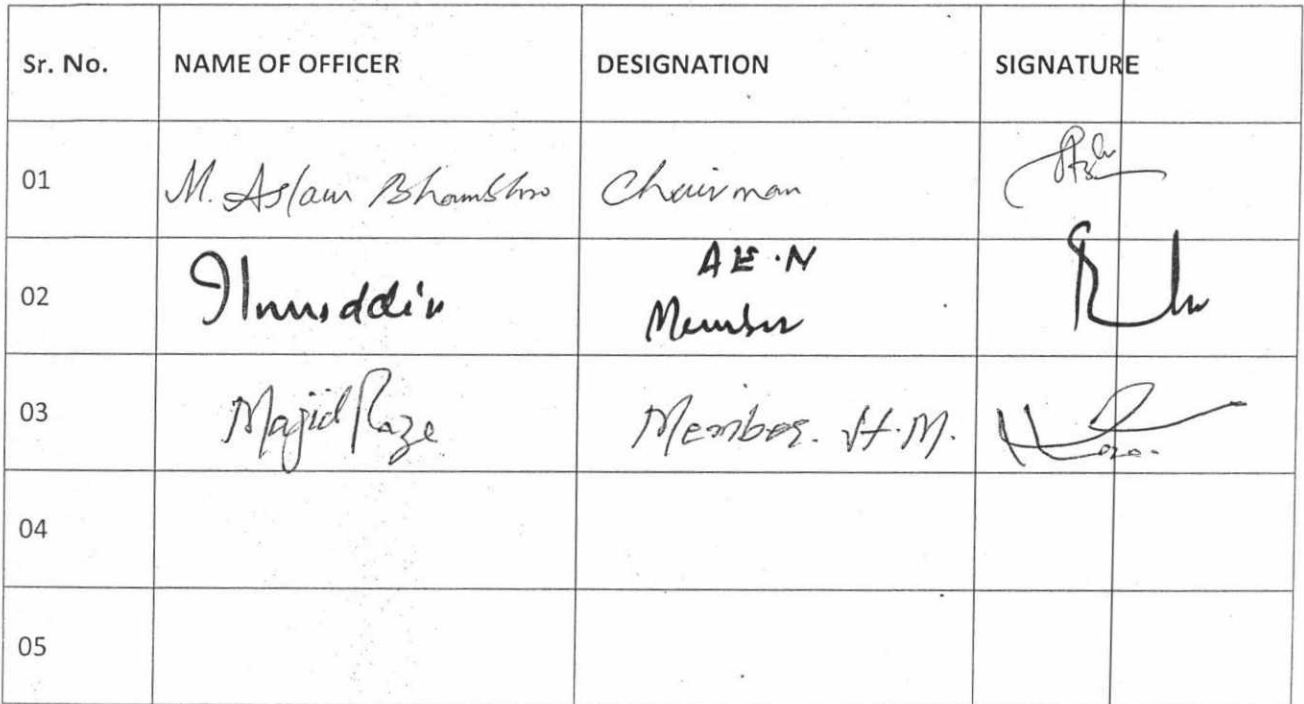 Sr. No. NAME OF OFFICER DESIGNATION SIGNATURE
01 M. Aslam Bhambhro Chairman
A E.N
02 Member
03 Majid Raze Member. H.M.
04
05